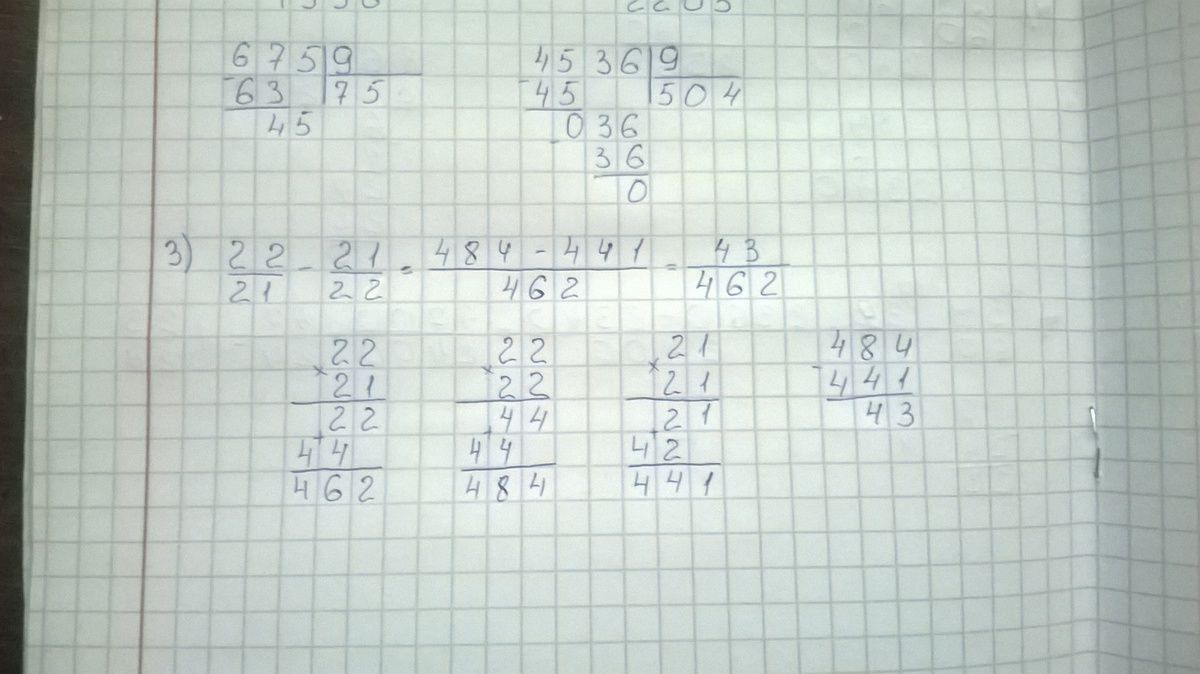 675 | 9
- 63 | 75
45
4536 | 9
- 45 | 504
036
- 36
0
3) 22/21 - 21/22 = 484 - 441/462 = 43/462
22
× 21
22
+ 44
462
22
× 22
44
+ 44
484
21
× 21
21
+ 42
441
484
- 441
43